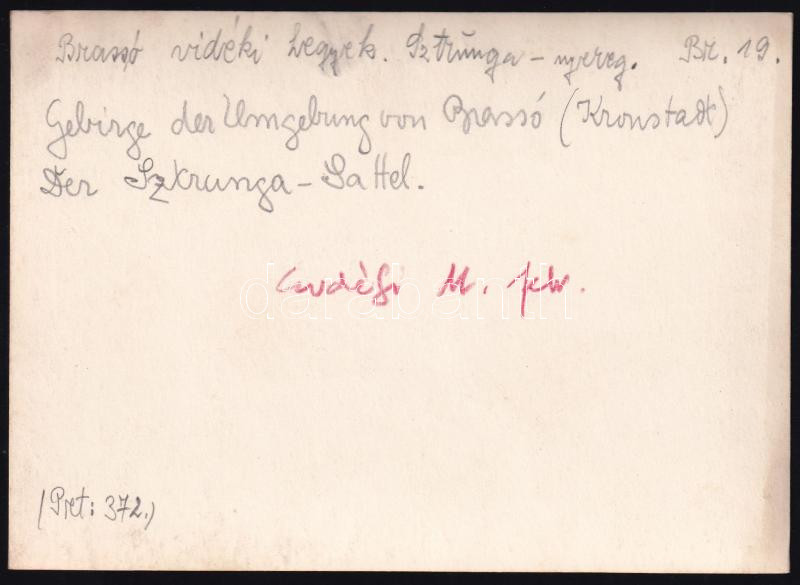 Brassó vidéki hegyek. Sztrunga-nyereg. Br. 19.
Gebirge der Umgebung von Brassó (Kronstadt)
Der Sztrunga-Sattel.
M. felv.
darabanth
(Pret: 372.)